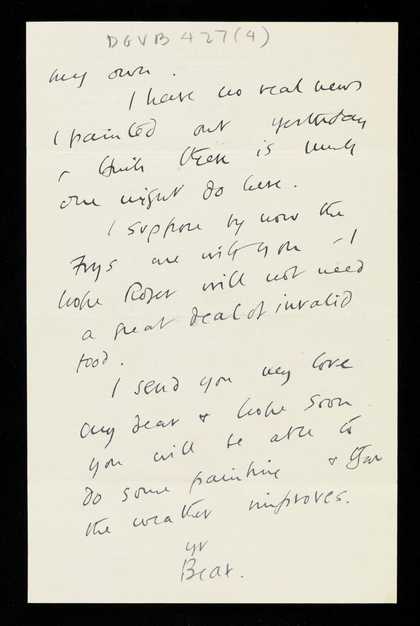 DGVB 427(4)
my own.
I have no real news
I painted out yesterday
& think there is much
one might do here.
I suppose by now the
Frys are with you – I
hope Roger will not need
a great deal of invalid
food.
I send you my love
my dear & hope soon
you will be able to
do some painting & that
the weather improves.
yr
Bear.